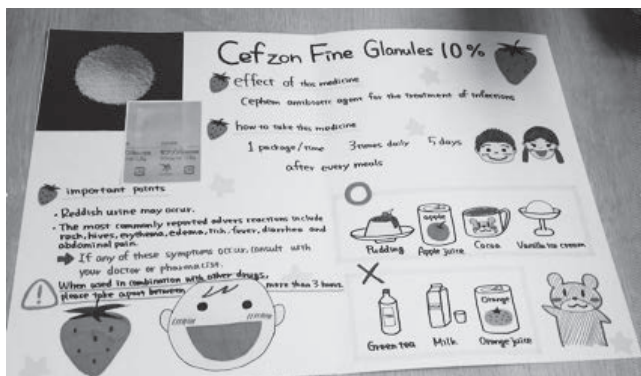 Cefzon Fine Glanules 10%
effect of this medicine
Cephem antibiotic agent for the treatment of infections
how to take this medicine
1 package/time 3 times daily 5 days
after every meals
important points
• Reddish urine may occur.
• The most commonly reported advers reactions include
rash, hives, erythema, edema, itch, fever, diarrhea and
abdominal pain.
If any of these symptoms occur, consult with
your doctor or pharmacist.
When used in combination with other drugs,
please take apart between more than 3 hours.
apple
Pudding Apple juice Cocoa Vanilla ice cream
Orange
Green tea Milk Orange juice